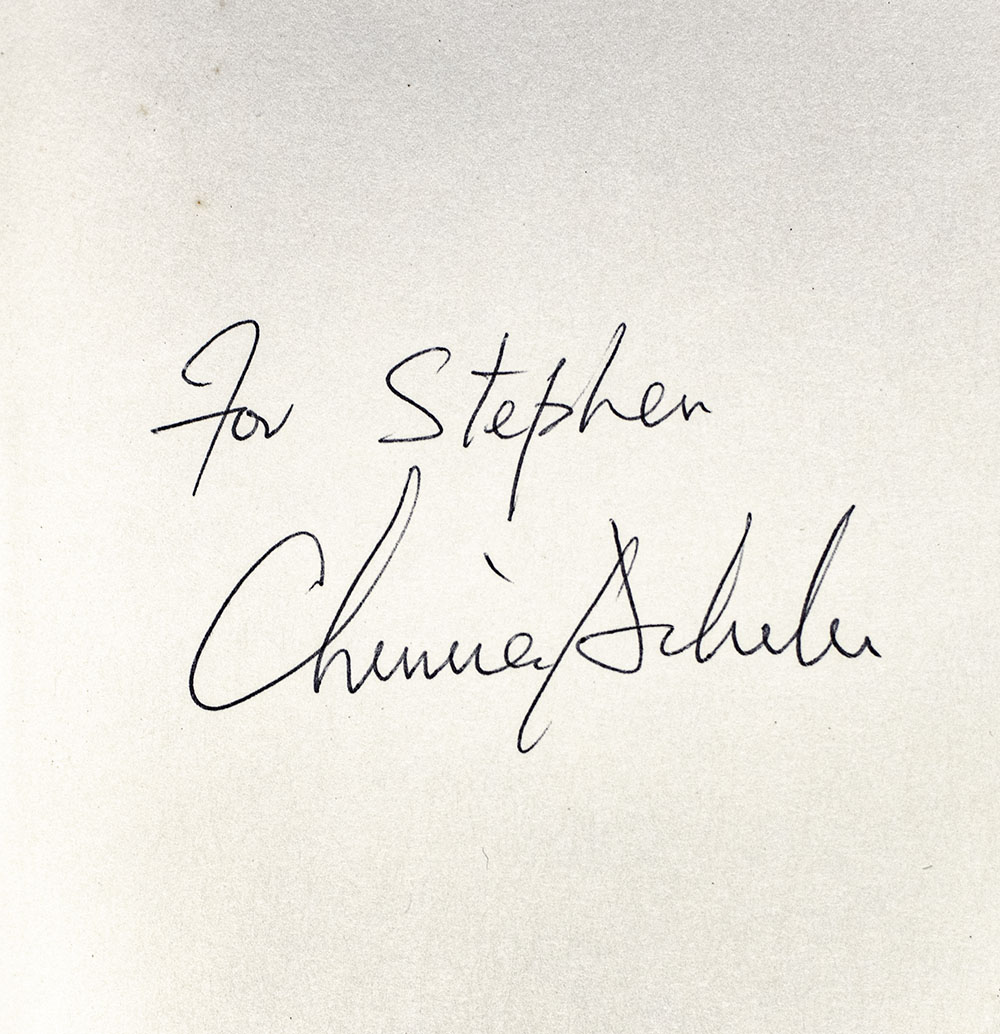 For Stephen
Chinua Achebe